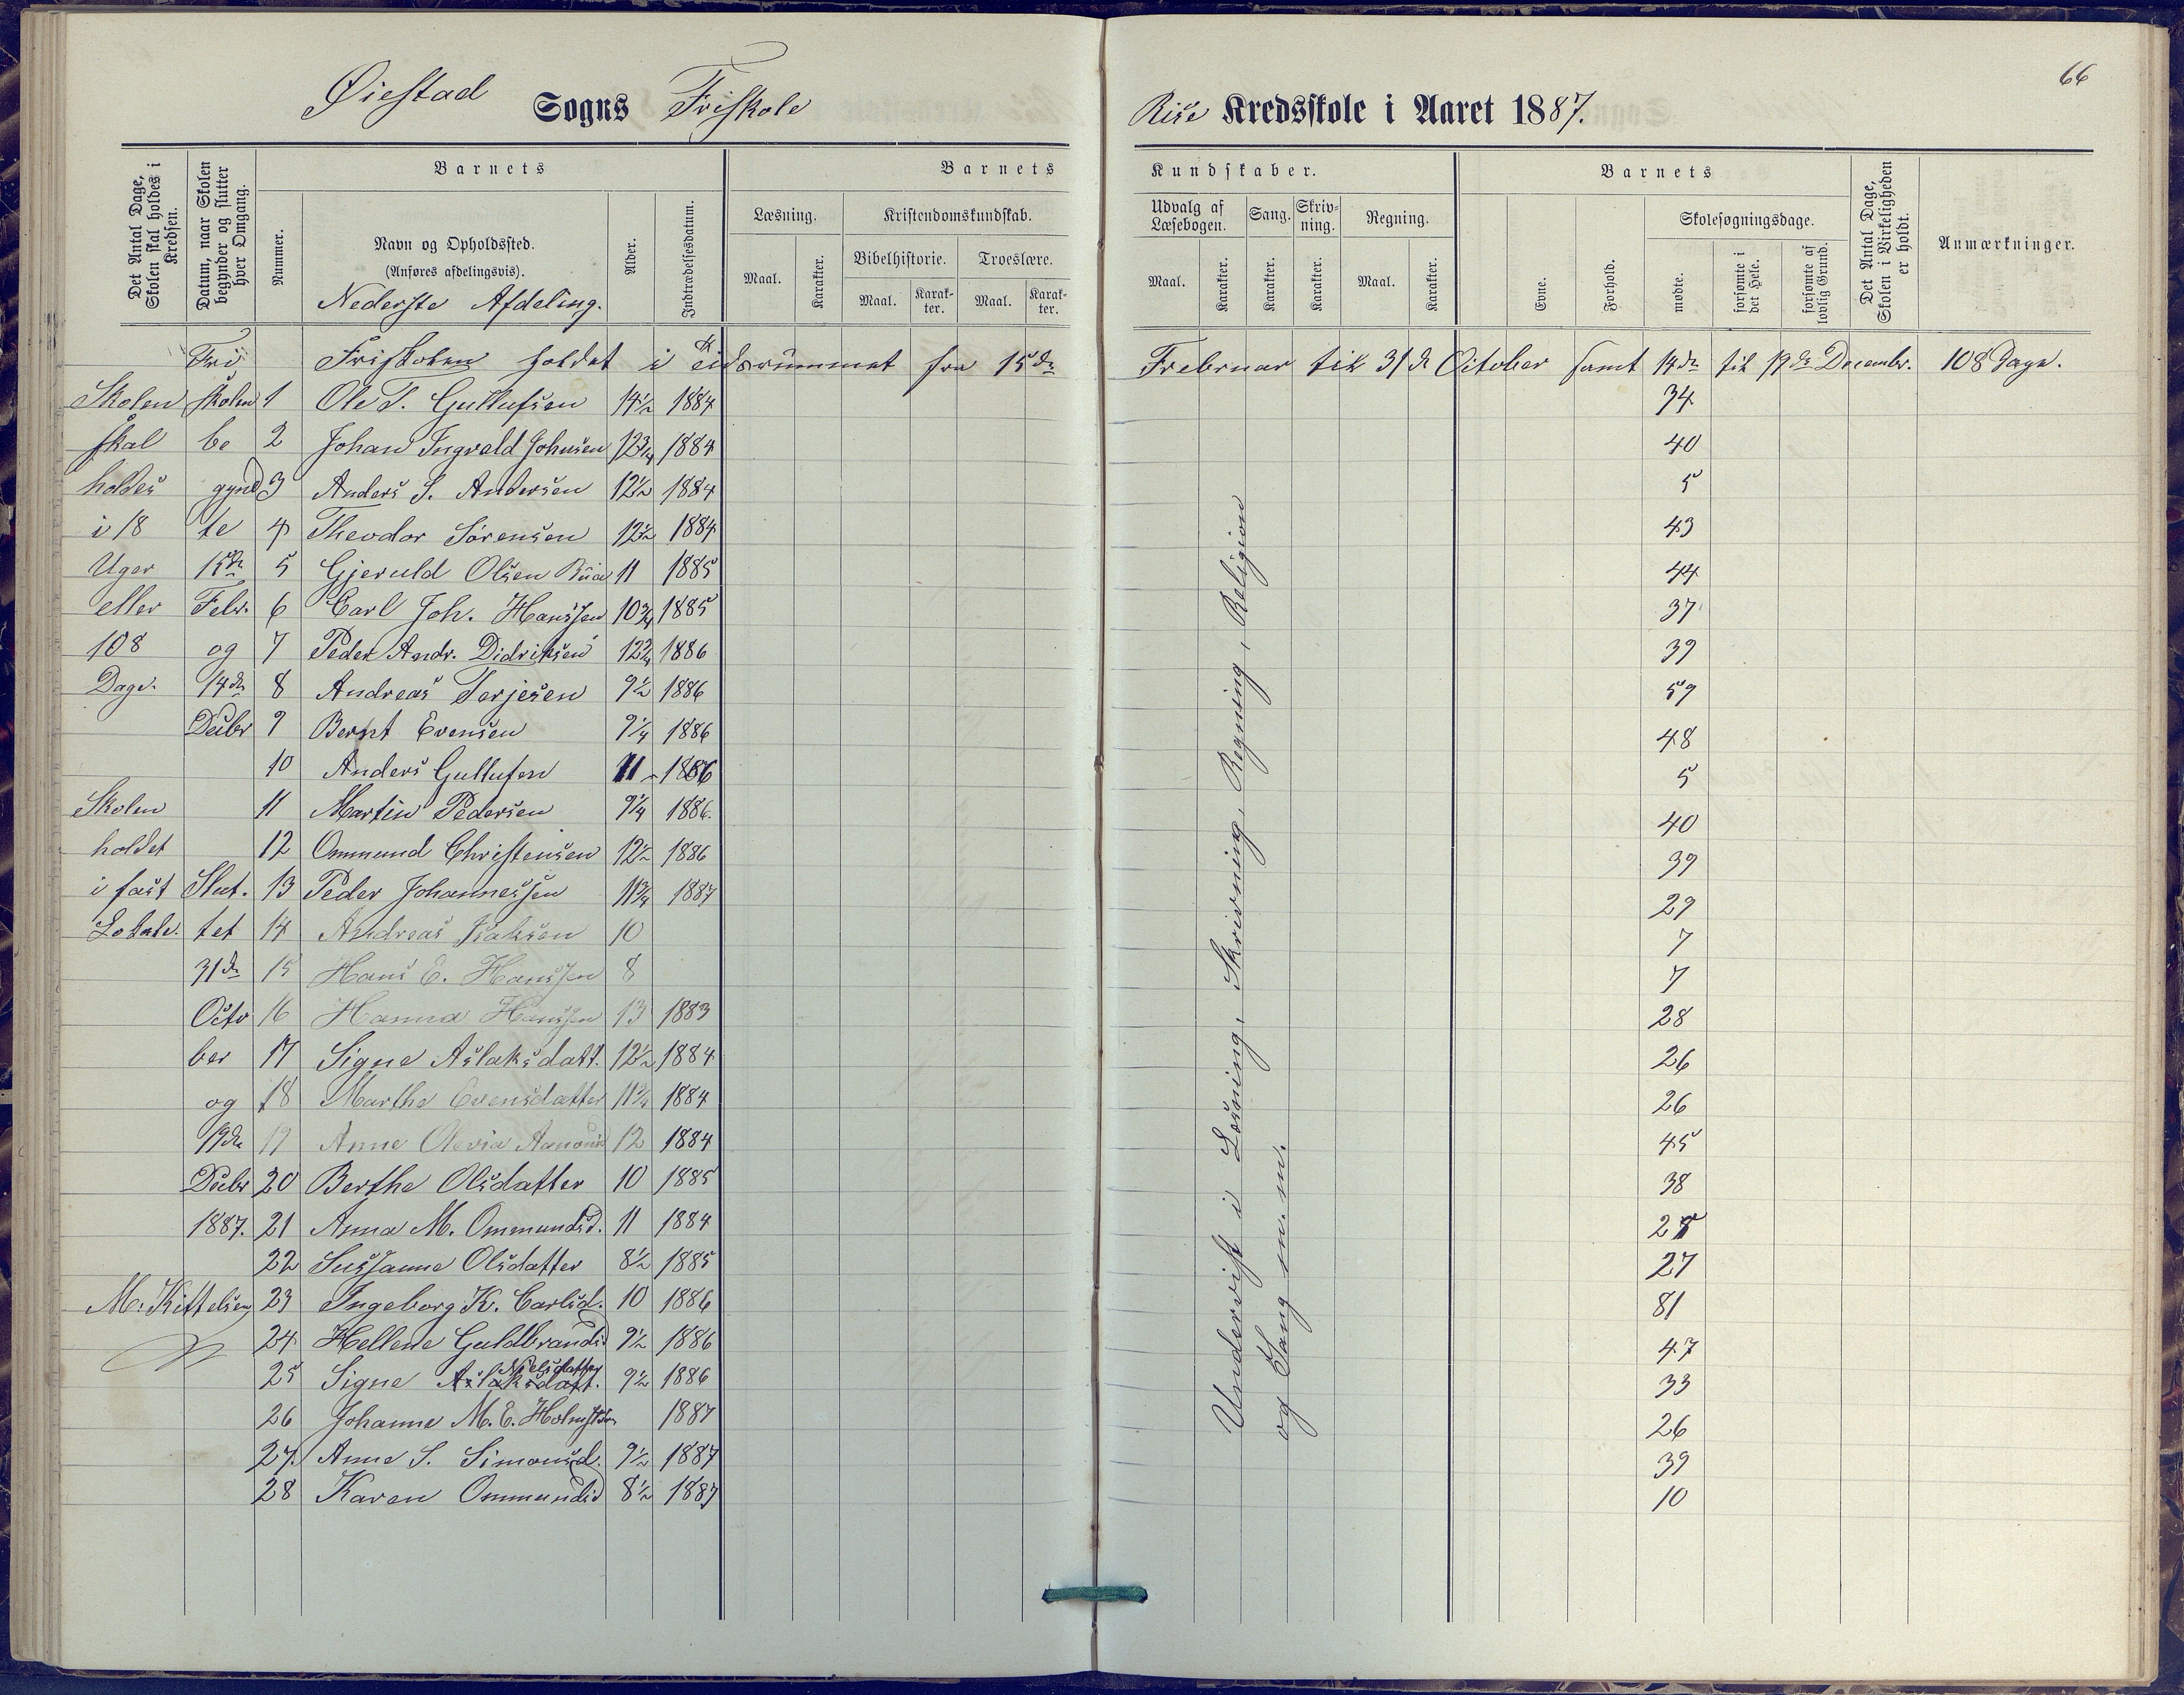 66
Øiestad Sogns Friskole Rise Kredsskole i Aaret 1887.
Det Antal Dage, Skolen skal holdes i Kredsen.
Datum, naar Skolen begynder og slutter hver Omgang.
Barnets
Nummer.
Navn og Opholdssted.
(Anføres afdelingsvis).
Nederste Afdeling.
Alder.
Indtrædelsesdatum.
Barnets Kundskaber.
Læsning.
Maal. Karakter.
Kristendomskundskab.
Bibelhistorie. Troeslære.
Maal. Karakter. Maal. Karakter.
Udvalg af Læsebogen.
Maal. Karakter.
Sang.
Karakter.
Skrivning.
Karakter.
Regning.
Maal. Karakter.
Barnets
Evne.
Forhold.
Skolesøgningsdage.
mødte.
forsømte i det Hele.
forsømte af lovlig Grund.
Det Antal Dage, Skolen i Virkeligheden er holdt.
Anmærkninger.
Fri Friskolen holdet i Tidsrummet fra 15de Februar til 31te October samt 14de til 19de Decembr. 108 Dage.
Skolen skolen 1 Ole T. Gullufsen 14½ 1884 34
skal be 2 Johan Ingvald Johnsen 12¾ 1884 40
holdes gynd 3 Anders S. Andersen 12½ 1884 5
i 18 te 4 Theodor Sørensen 12½ 1884 43
Uger 15de 5 Gjeruld Olsen 11 1885 44
eller Febr. 6 Carl Joh. Hanssen 10¾ 1885 37
108 og 7 Peder Andr. Didriksen 12¾ 1886 39
Dage. 14de 8 Andreas Terjesen 9½ 1886 59
Decbr 9 Bernt Evensen 9¼ 1886 48
10 Anders Gullufsen 11 1886 5
Skolen 11 Martin Pedersen 9¼ 1886. 40
holdet 12 Ommund Christensen 12½ 1886 39
i fast Slut. 13 Peder Johannessen 11¾ 1887 29
Lokale. tet 14 Andreas Isaksen 10 7
31de 15 Hans E. Hanssen 8 7
Octo 16 Hanna Hanssen 13 1883 28
ber 17 Signe Aslaksdatt. 12½ 1884 26
og 18 Marthe Evensdatter 11¾ 1884 26
19de 19 Anne Olevia 12 1884 45
Decbr 20 Berthe Olsdatter 10 1885 38
1887. 21 Anna M. Ommundsd. 11 1884 28
22 Sussanne Olsdatter 8½ 1885 27
M. Kittelsen 23 Ingeborg K. Carlsd. 10 1886 81
24 Hellene Guldbrandsd 9½ 1886 47
25 Signe Aslaksdatt. Nielsdatter 9½ 1886 33
26 Johanne M. E. 1887 26
27 Anne S. Simonsd. 9½ 1887 39
28 Karen Ommundsd 8½ 1887 10
Undervist i Læsning, Skrivning, Regning, Religion
og Sang m. m.